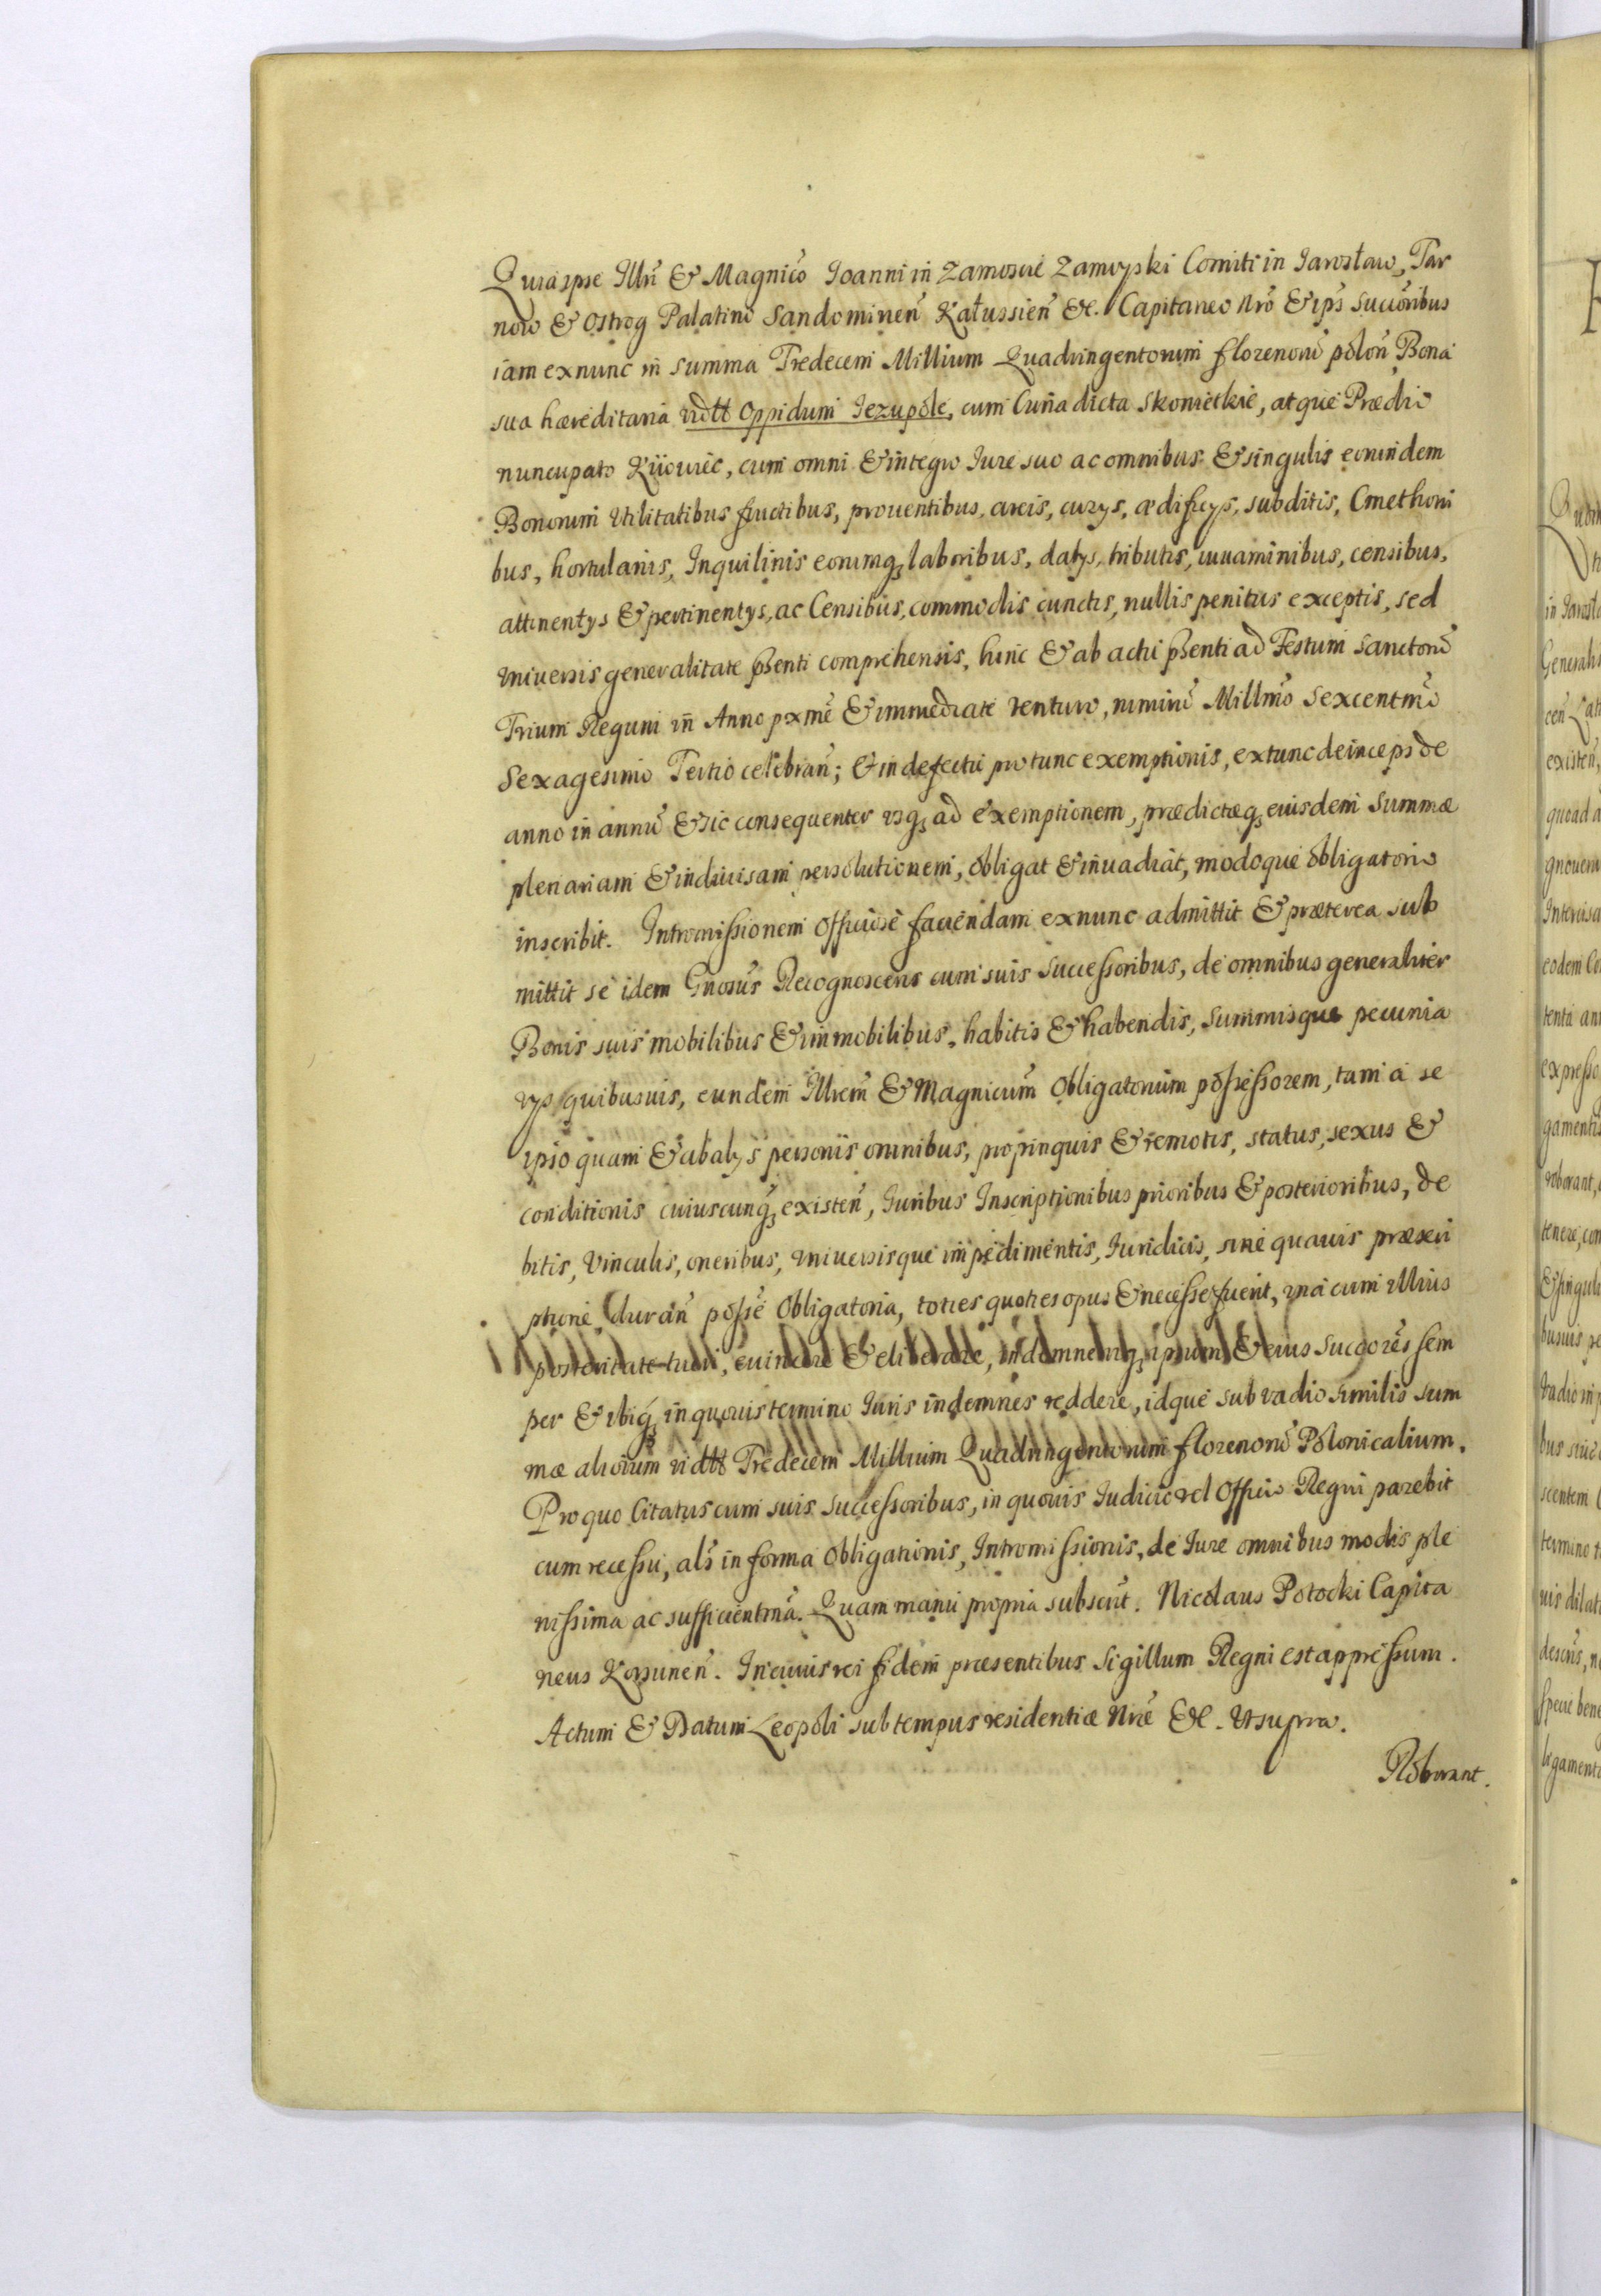 Quia ipse Illri͂ & Magnico͂ Joanni in Zamoscie Zamoyski Comiti in Jarosław, Tar
now & Ostrog Palatino Sandominen͂ Kałussien͂ &c. Capitaneo Nro͂ & ips͂ succo͂ribus
iam exnunc in summa Tredecem Millium Quadringentorum florenoru͂ polon͂ Bona
sua hæreditaria vidtt Oppidum Jezupole, cum Curia dicta Skomietkie, atque Prædio
nuncupato, cum omni & integro Jure suo ac omnibus & singulis eorundem
Bonorum Utilitatibus fructibus, prouentibus, areis, curys, ædificys, subditis, Cmethoni
bus, hortulanis, Inquilinis eorumq3 laboribus, datys, tributis, iuuaminibus, censibus,
attinentys & pertinentys, ac Censibus, commodis cunctis, nullis penitus exceptis, sed
vniuersis generalitate p͂senti comprehensis, hinc & ab actu p͂senti ad Festum Sanctoru͂
Trium Regum in Anno pxme͂ & immediate venturo, nimiru͂ Millmo͂ Sexcentmo͂
Sexagesimo Tertio celebran͂; & in defectu pro tunc exemptionis, extunc deinceps de
anno in annu͂ & sic consequenter vsq3 ad exemptionem, prædictæq3 eiusdem Summæ
plenariam & indiuisam persolutionem, obligat & inuadiat, modoque obligatorio
inscribit. Intromissionem Officiose faciendam exnunc admittit & præterea sub
mittit se idem Gnosus͂ Recognoscens cum suis Successoribus, de omnibus generaliter
Bonis suis mobilibus & immobilibus, habitis & habendis, Summisque pecunia
rys quibusuis, eundem Illrem͂ & Magnicum͂ Obligatorium possessorem, tam a se
ipso quam & ab alys personis omnibus, propinquis & remotis, status, sexus &
conditionis cuiuscunq3 existen͂, Juribus Inscriptionibus prioribus & posterioribus, de
bitis, Vinculis, oneribus, vniuersisque impedimentis, Juridicis, sine quauis præscri
ptione, duran͂ posse͂ Obligatoria, toties quoties opus & necesse fuerit, vna cum illius
posteritate tueri, euincere & eliberare, indemnemq3 ipsum & eius succores͂ sem
per & vbiq3 in quouis termino Juris indemnes reddere, idque sub vadio similis sum
mæ alterum vidtt Tredecem Millium Quadringentorum florenoru͂ Polonicalium.
Pro quo Citatus cum suis successoribus, in quouis Judicio vel Officio Regni parebit
cum recessu, als͂ in forma Obligationis, Intromissionis, de Jure omnibus modis ple
nissima ac sufficientma͂. Quam manu propria subscrit͂. Nicolaus Potocki Capita
neus Korsunen͂. In cuius rei fidem præsentibus Sigillum Regni est appressum.
Actum & Datum Leopoli sub tempus residentiæ Nræ͂ &c. Vt supra.
Roborant.